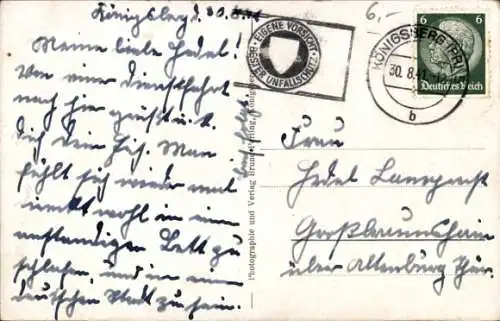 Königsberg d. 30.8.41
Meine liebe Hedel!
Von einer Dienstfahrt
nach hier grüßt
dich dein Man
fühlt sich wieder mal
recht wohl in einem
anständigen Bett zu
schlafen und in einer
deutschen Stadt zu sein.
EIGENE VORSICHT
BESTER UNFALLSCHUTZ
KÖNIGSBERG (PR)
30.8.41
b
6
6
Deutsches Reich
6,-
Photographie und Verlag Bruno Perling, Königsberg
Frau
Hedel
Großbraunshain
über Altenburg Thür.